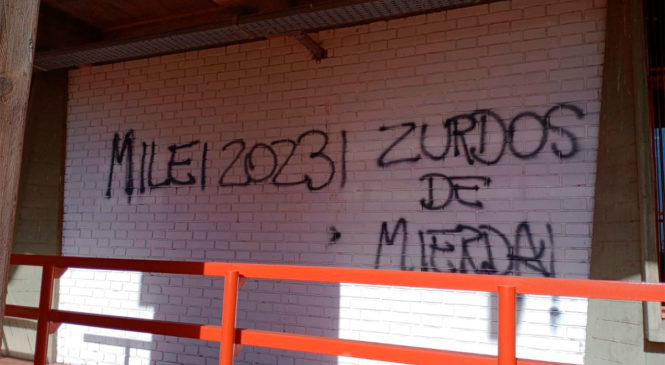 MILEI 2023!
ZURDOS
DE
MIERDA!